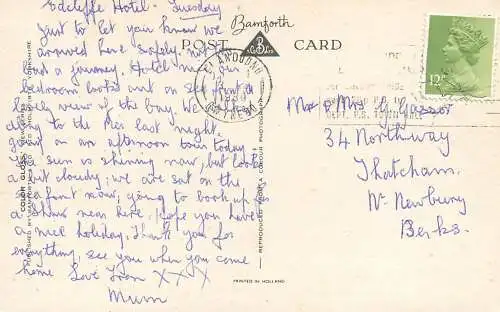 Edcliffe Hotel. Tuesday
Just to let you know we
arrived here safely, not
a journey. Hotel
bedroom looks out on sea front a
view of the bay. We
to the Pier last night.
on an afternoon tour today
sun is shining now, but look
a bit cloudy; we are sat on the
front now; going to book up for
a show near here, hope you have
a nice holiday. Thank you for
everything, see you when you come
home Love from X X X
Mum
Bamforth
POST CARD
LLANDUDNO
GWYNEDD
12P
Mr & Mrs G. Gasson
34 Northway
Thatcham.
Nr. Newbury
Berks.
COLOR GLOSS VIEW SERIES
REPRODUCED FROM A COLOUR PHOTOGRAPH
PRINTED IN HOLLAND